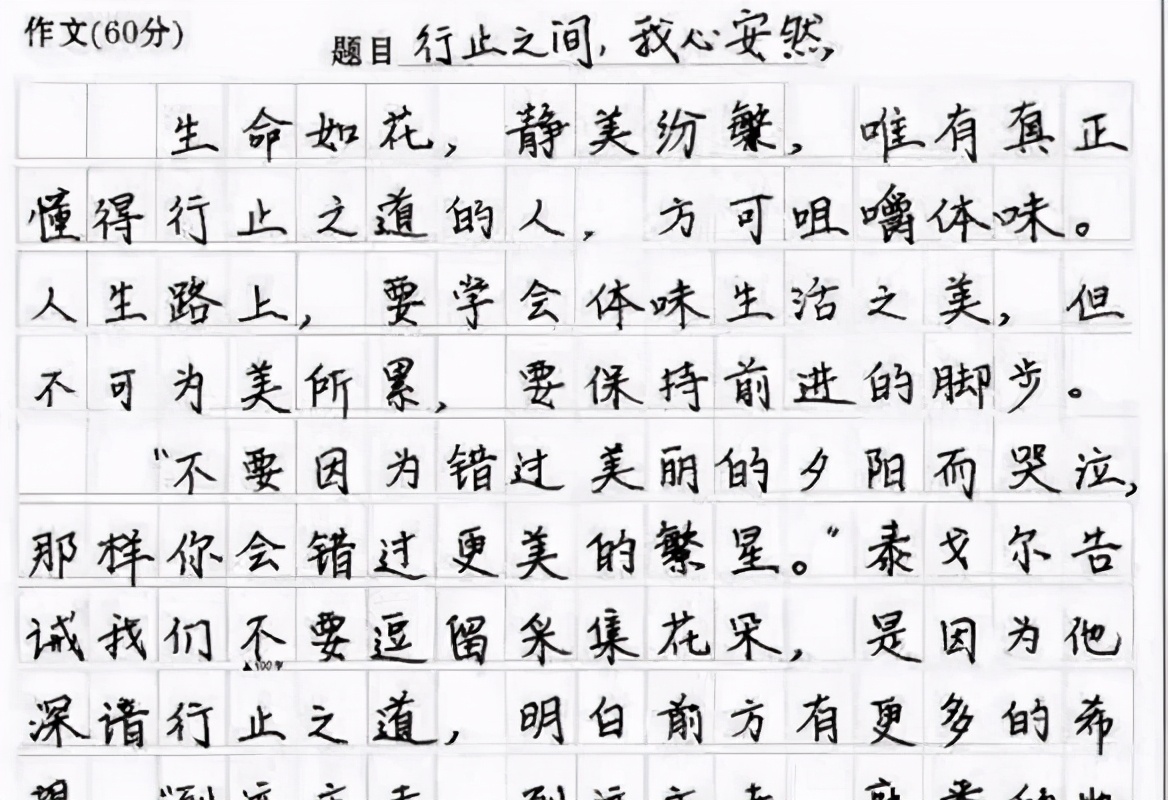 作文(60分)
题目 行止之间，我心安然
生命如花，静美纷繁，唯有真正
懂得行止之道的人，方可咀嚼体味。
人生路上，要学会体味生活之美，但
不可为美所累，要保持前进的脚步。
“不要因为错过美丽的夕阳而哭泣，
那样你会错过更美的繁星。”泰戈尔告
诫我们不要逗留采集花朵，是因为他
▲100字
深谙行止之道，明白前方有更多的希